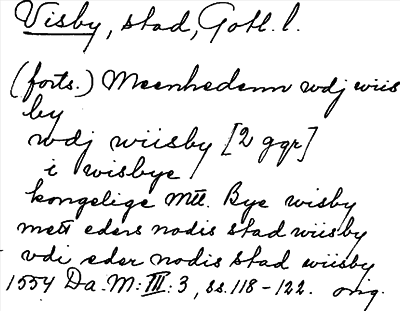 Visby, stad, Gotl. l.
(forts.) Meenhedenn wdj wiis
by
wdj wiisby [2 ggr]
i wisbye
kongelige Mtt. Bye wisby
mett eders nodis stad wiisby
vdi eder nodis stad wiisby
1554 Da. M: III: 3, ss. 118-122. orig.